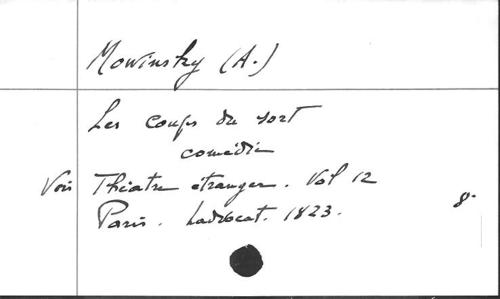 Mowinsky (A.)
Les coups du sort
comédie
Voir Théatre étranger. Vol 12
Paris. Ladvocat. 1823.
8.